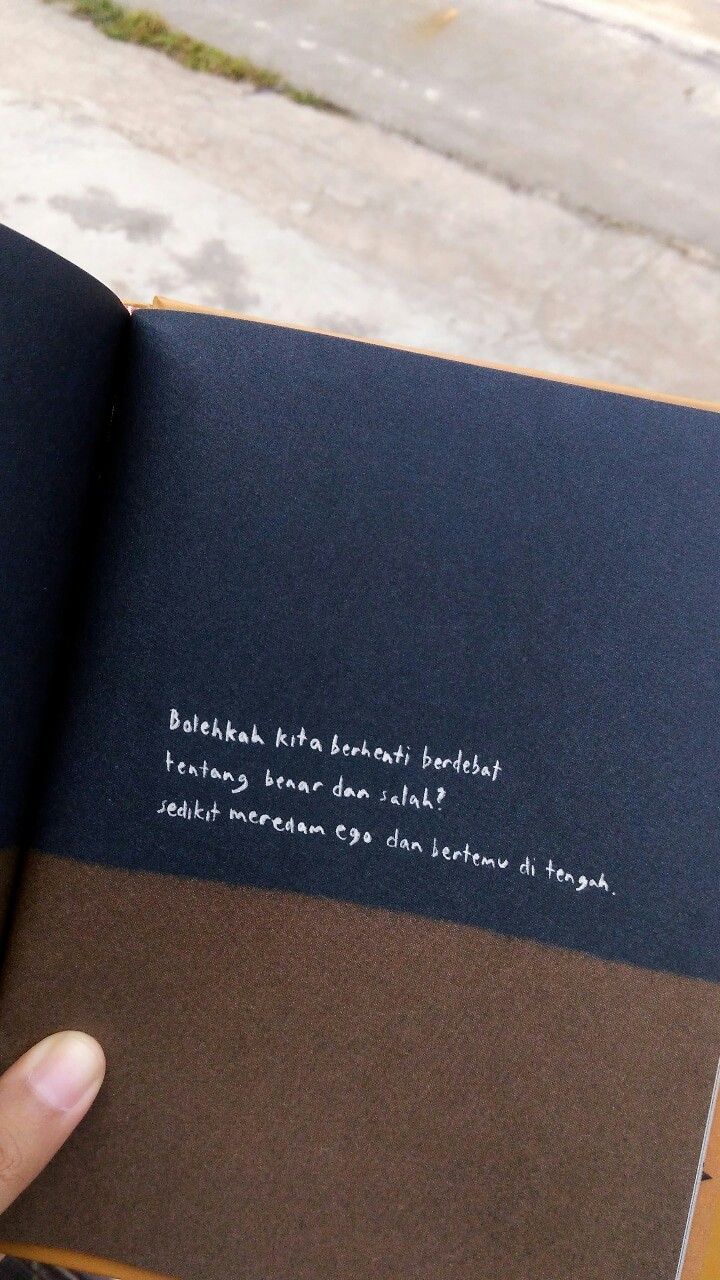 Bolehkah kita berhenti berdebat
tentang benar dan salah?
sedikit meredam ego dan bertemu di tengah.